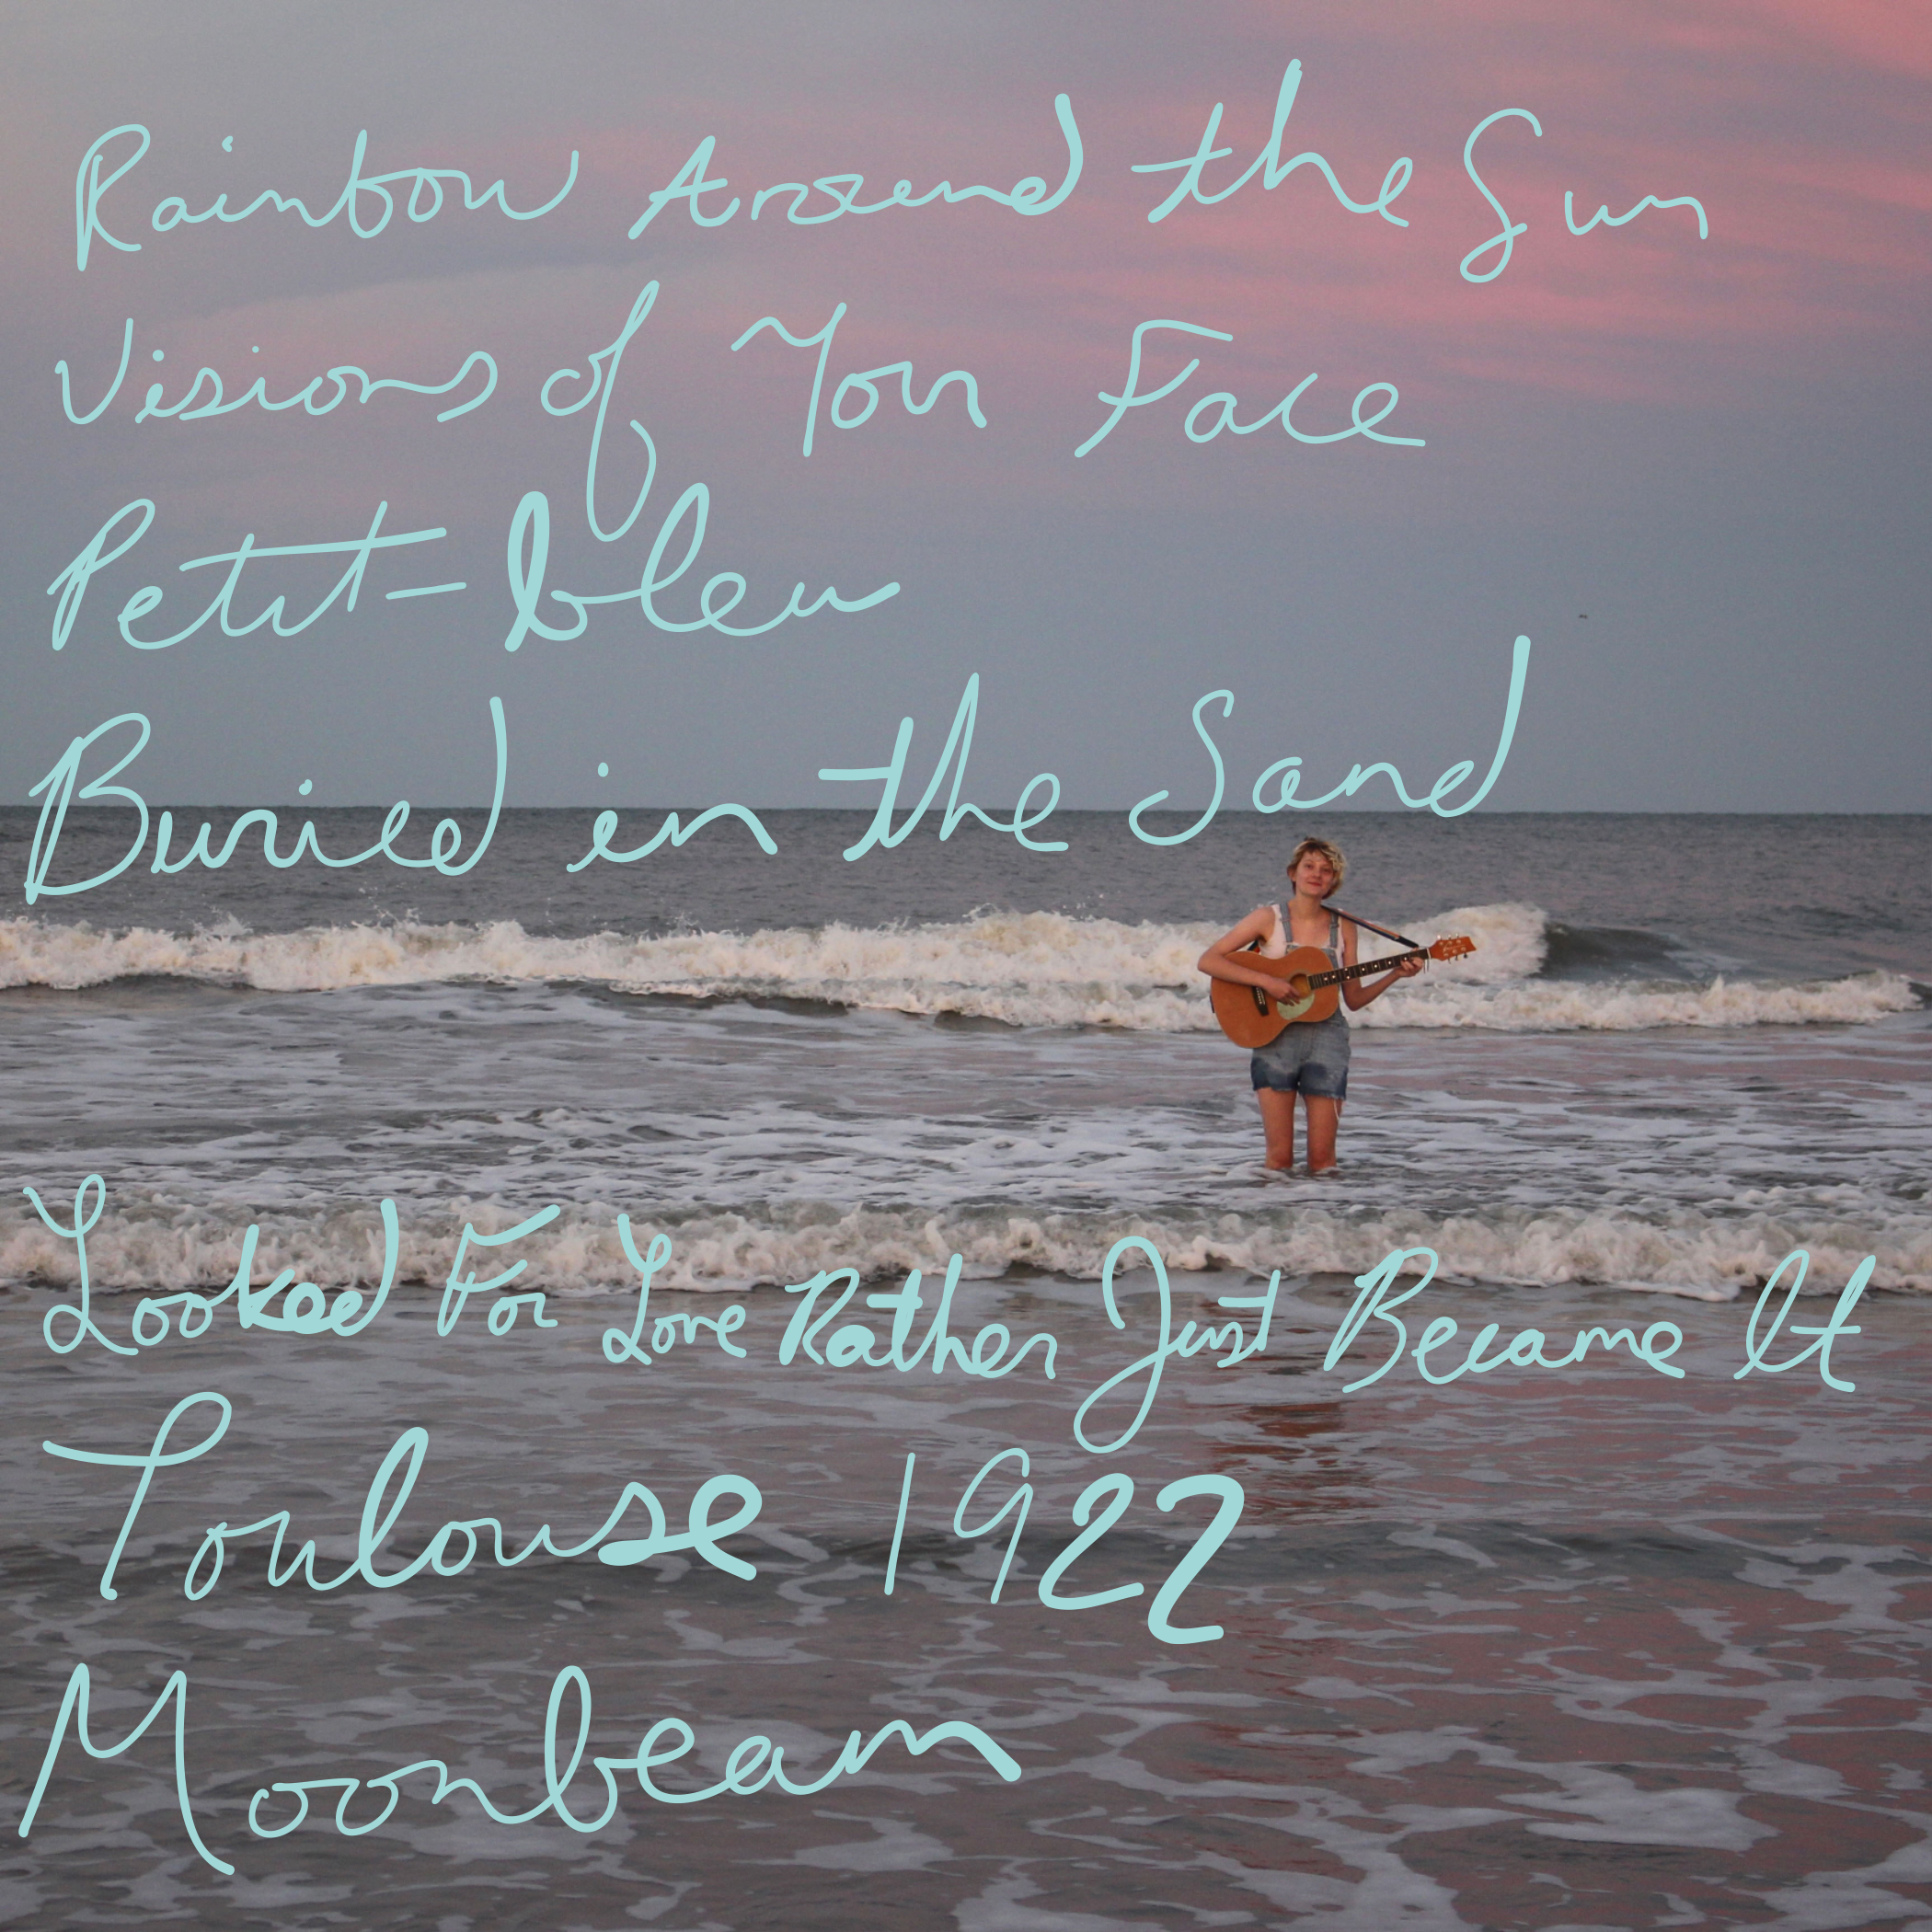 Rainbow Around the Sun
Visions of Your Face
Petit-bleu
Buried in the Sand
Looked For Love Rather Just Became It
Toulouse 1922
Moonbeam